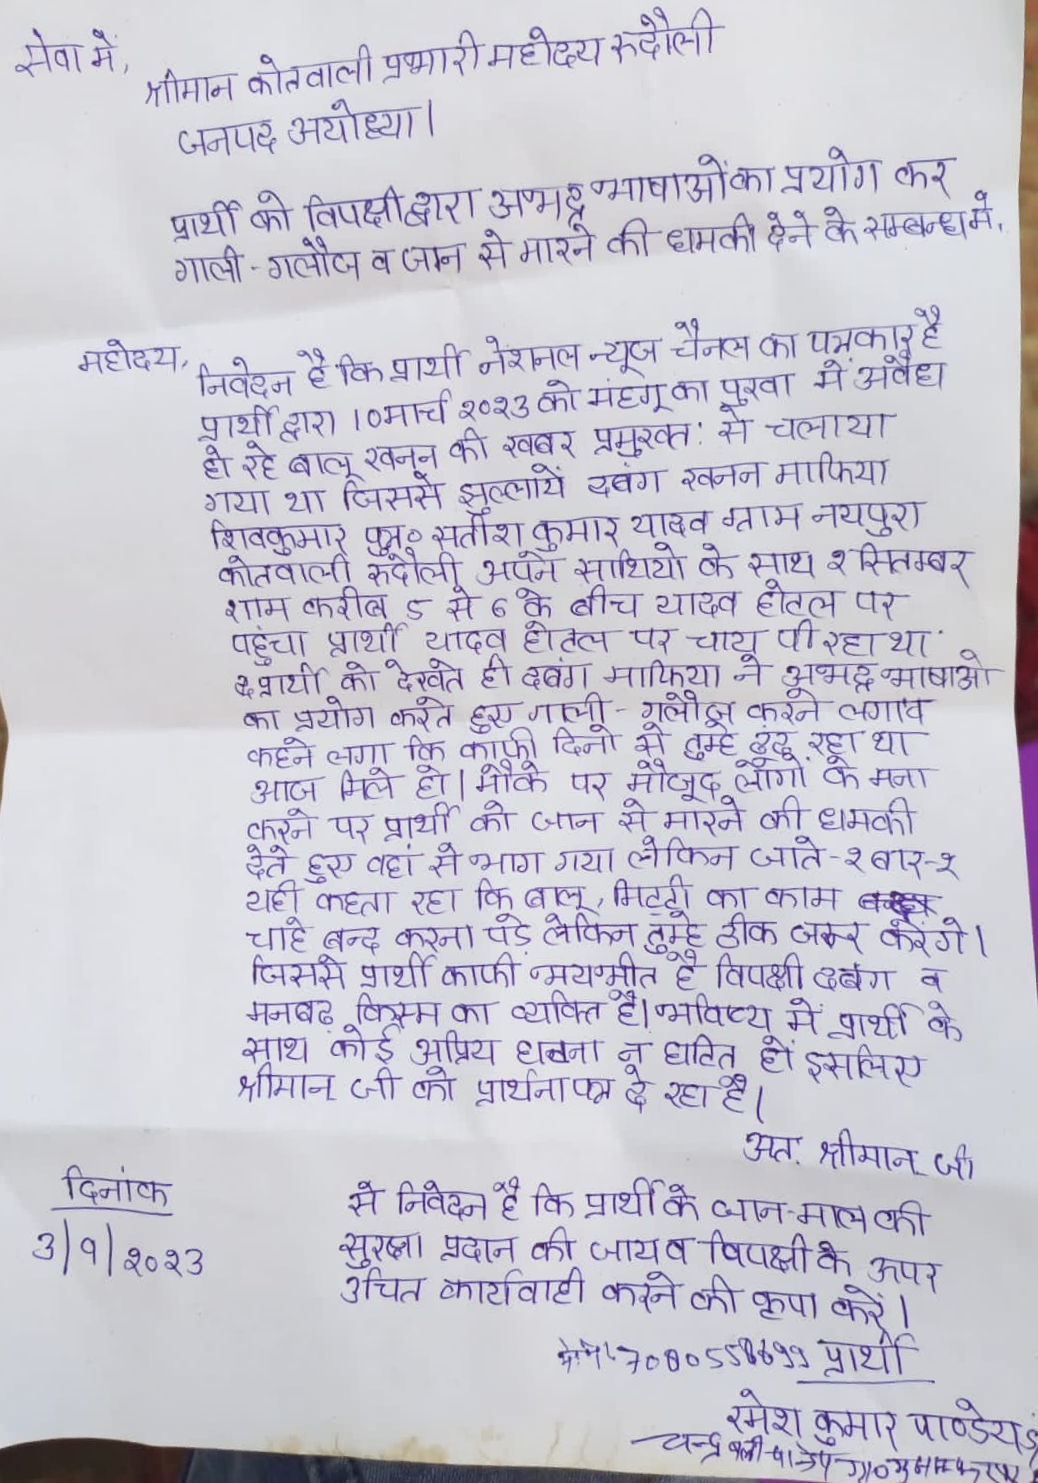 सेवा में,
श्रीमान कोतवाली प्रभारी महोदय रुदौली
जनपद अयोध्या।
प्रार्थी को विपक्षी द्वारा अभद्र भाषाओं का प्रयोग कर
गाली-गलौज व जान से मारने की धमकी देने के सम्बन्ध में,
महोदय,
निवेदन है कि प्रार्थी नेशनल न्यूज चैनल का पत्रकार है
प्रार्थी द्वारा 10 मार्च २०२३ को मंहगू का पुरवा में अवैध
हो रहे बालू खनन की खबर प्रमुखतः से चलाया
गया था जिससे झुल्लायें दबंग खनन माफिया
शिवकुमार पुत्र० सतीश कुमार यादव ग्राम नयपुरा
कोतवाली रुदौली अपने साथियो के साथ २ सितम्बर
शाम करीब 5 से 6 के बीच यादव होटल पर
पहुंचा प्रार्थी यादव होटल पर चाय पी रहा था
प्रार्थी को देखते ही दबंग माफिया ने अभद्र भाषाओ
का प्रयोग करते हुए गाली-गलौज करने लगा व
कहने लगा कि काफी दिनो से तुम्हे ढूंढ रहा था
आज मिले हो। मौके पर मौजूद लोगों के मना
करने पर प्रार्थी को जान से मारने की धमकी
देते हुए वहां से भाग गया लेकिन जाते-२ बार-२
यही कहता रहा कि बालू, मिट्टी का काम
चाहे बन्द करना पड़े लेकिन तुम्हे ठीक जरूर करेंगे।
जिससे प्रार्थी काफी भयभीत है विपक्षी दबंग व
मनबढ़ किस्म का व्यक्ति है। भविष्य में प्रार्थी के
साथ कोई अप्रिय घटना न घटित हों इसलिए
श्रीमान् जी को प्रार्थना पत्र दे रहा है।
अतः श्रीमान् जी
से निवेदन है कि प्रार्थी के जान-माल की
सुरक्षा प्रदान की जाय व विपक्षी के ऊपर
उचित कार्यवाही करने की कृपा करें।
दिनांक
3/9/२०२3
7080558699 प्रार्थी
रमेश कुमार पाण्डेय
चन्द्र बली पाण्डेय